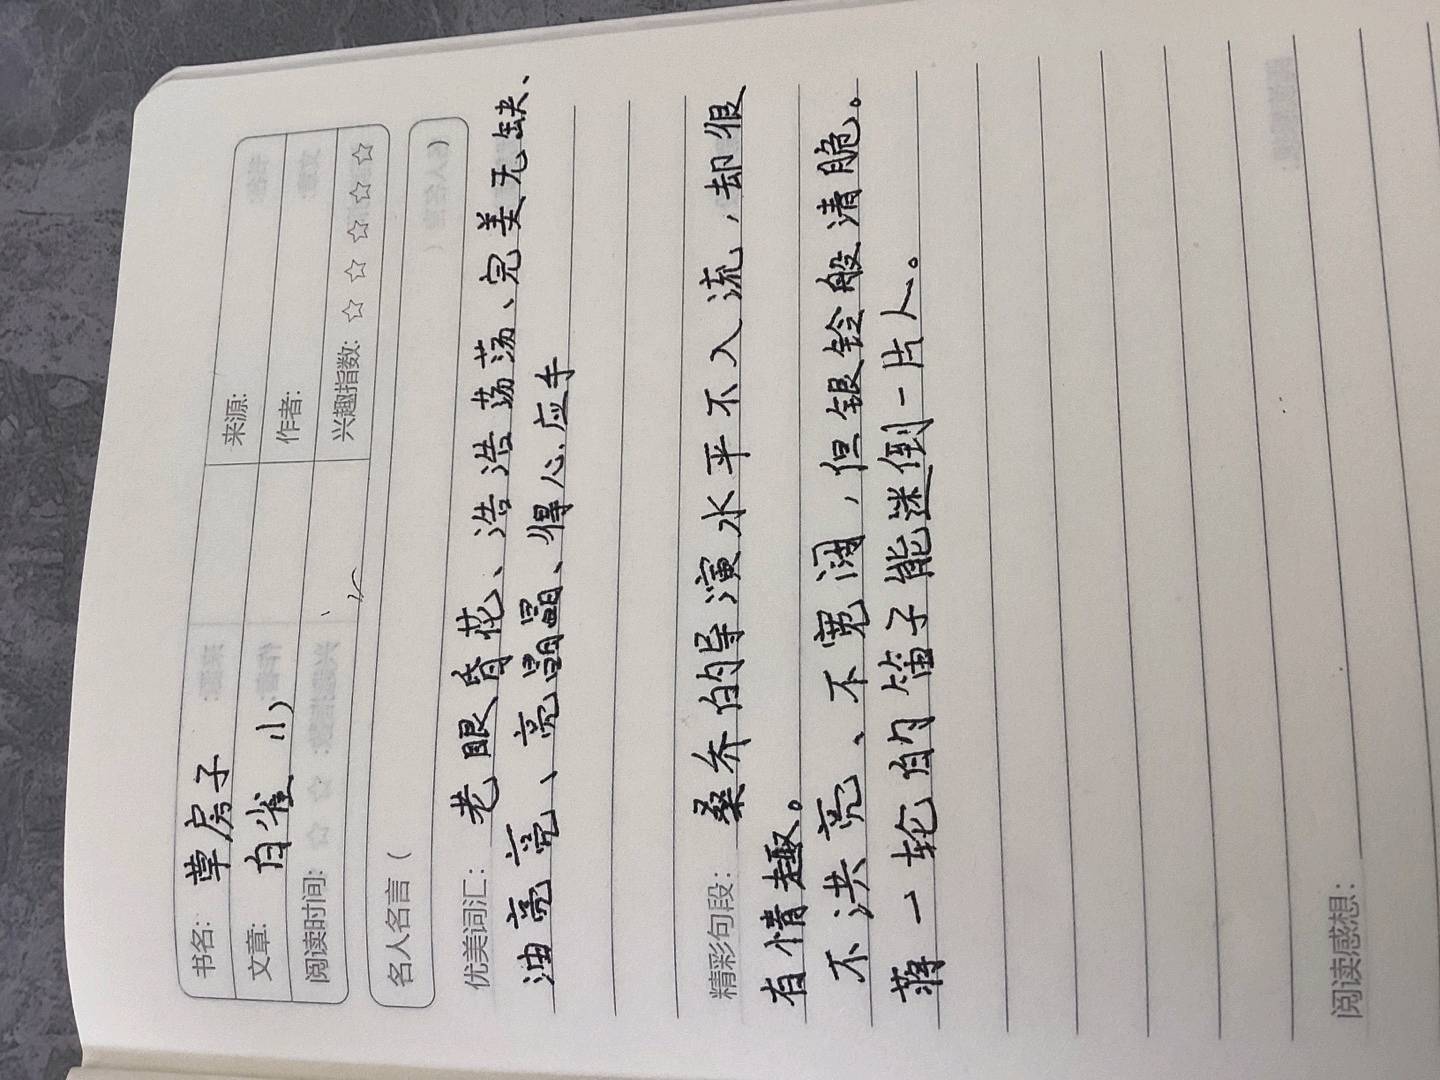 书名：草房子
来源：
文章：白雀 小
作者：
阅读时间：
兴趣指数：☆ ☆ ☆ ☆ ☆
名人名言（
优美词汇：老眼昏花、浩浩荡荡、完美无缺、
油亮亮、亮晶晶、得心应手
精彩句段：桑乔的导演水平不入流，却很
有情趣。
不洪亮、不宽阔，但银铃般清脆。
蒋一轮的笛子能迷倒一片人。
阅读感想：